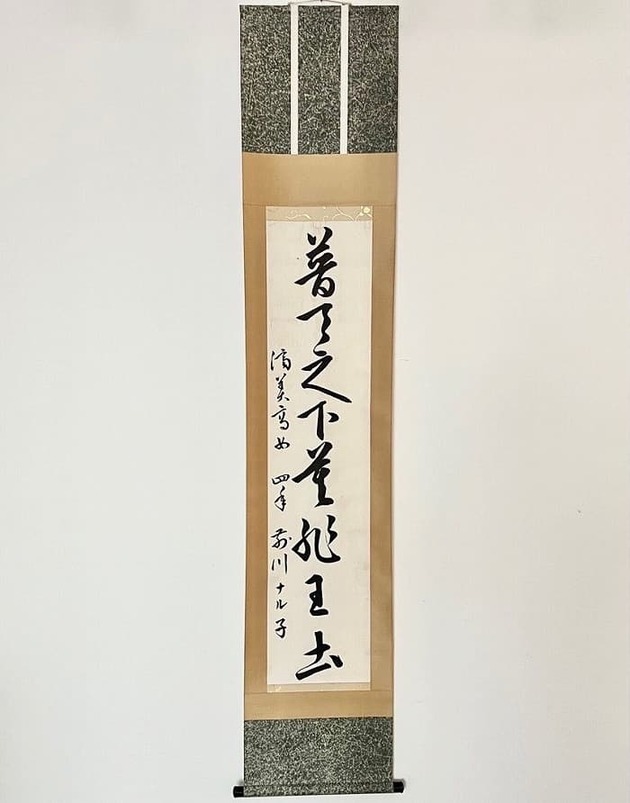 普天之下莫非王土
済美高女 四年 前川ナル子